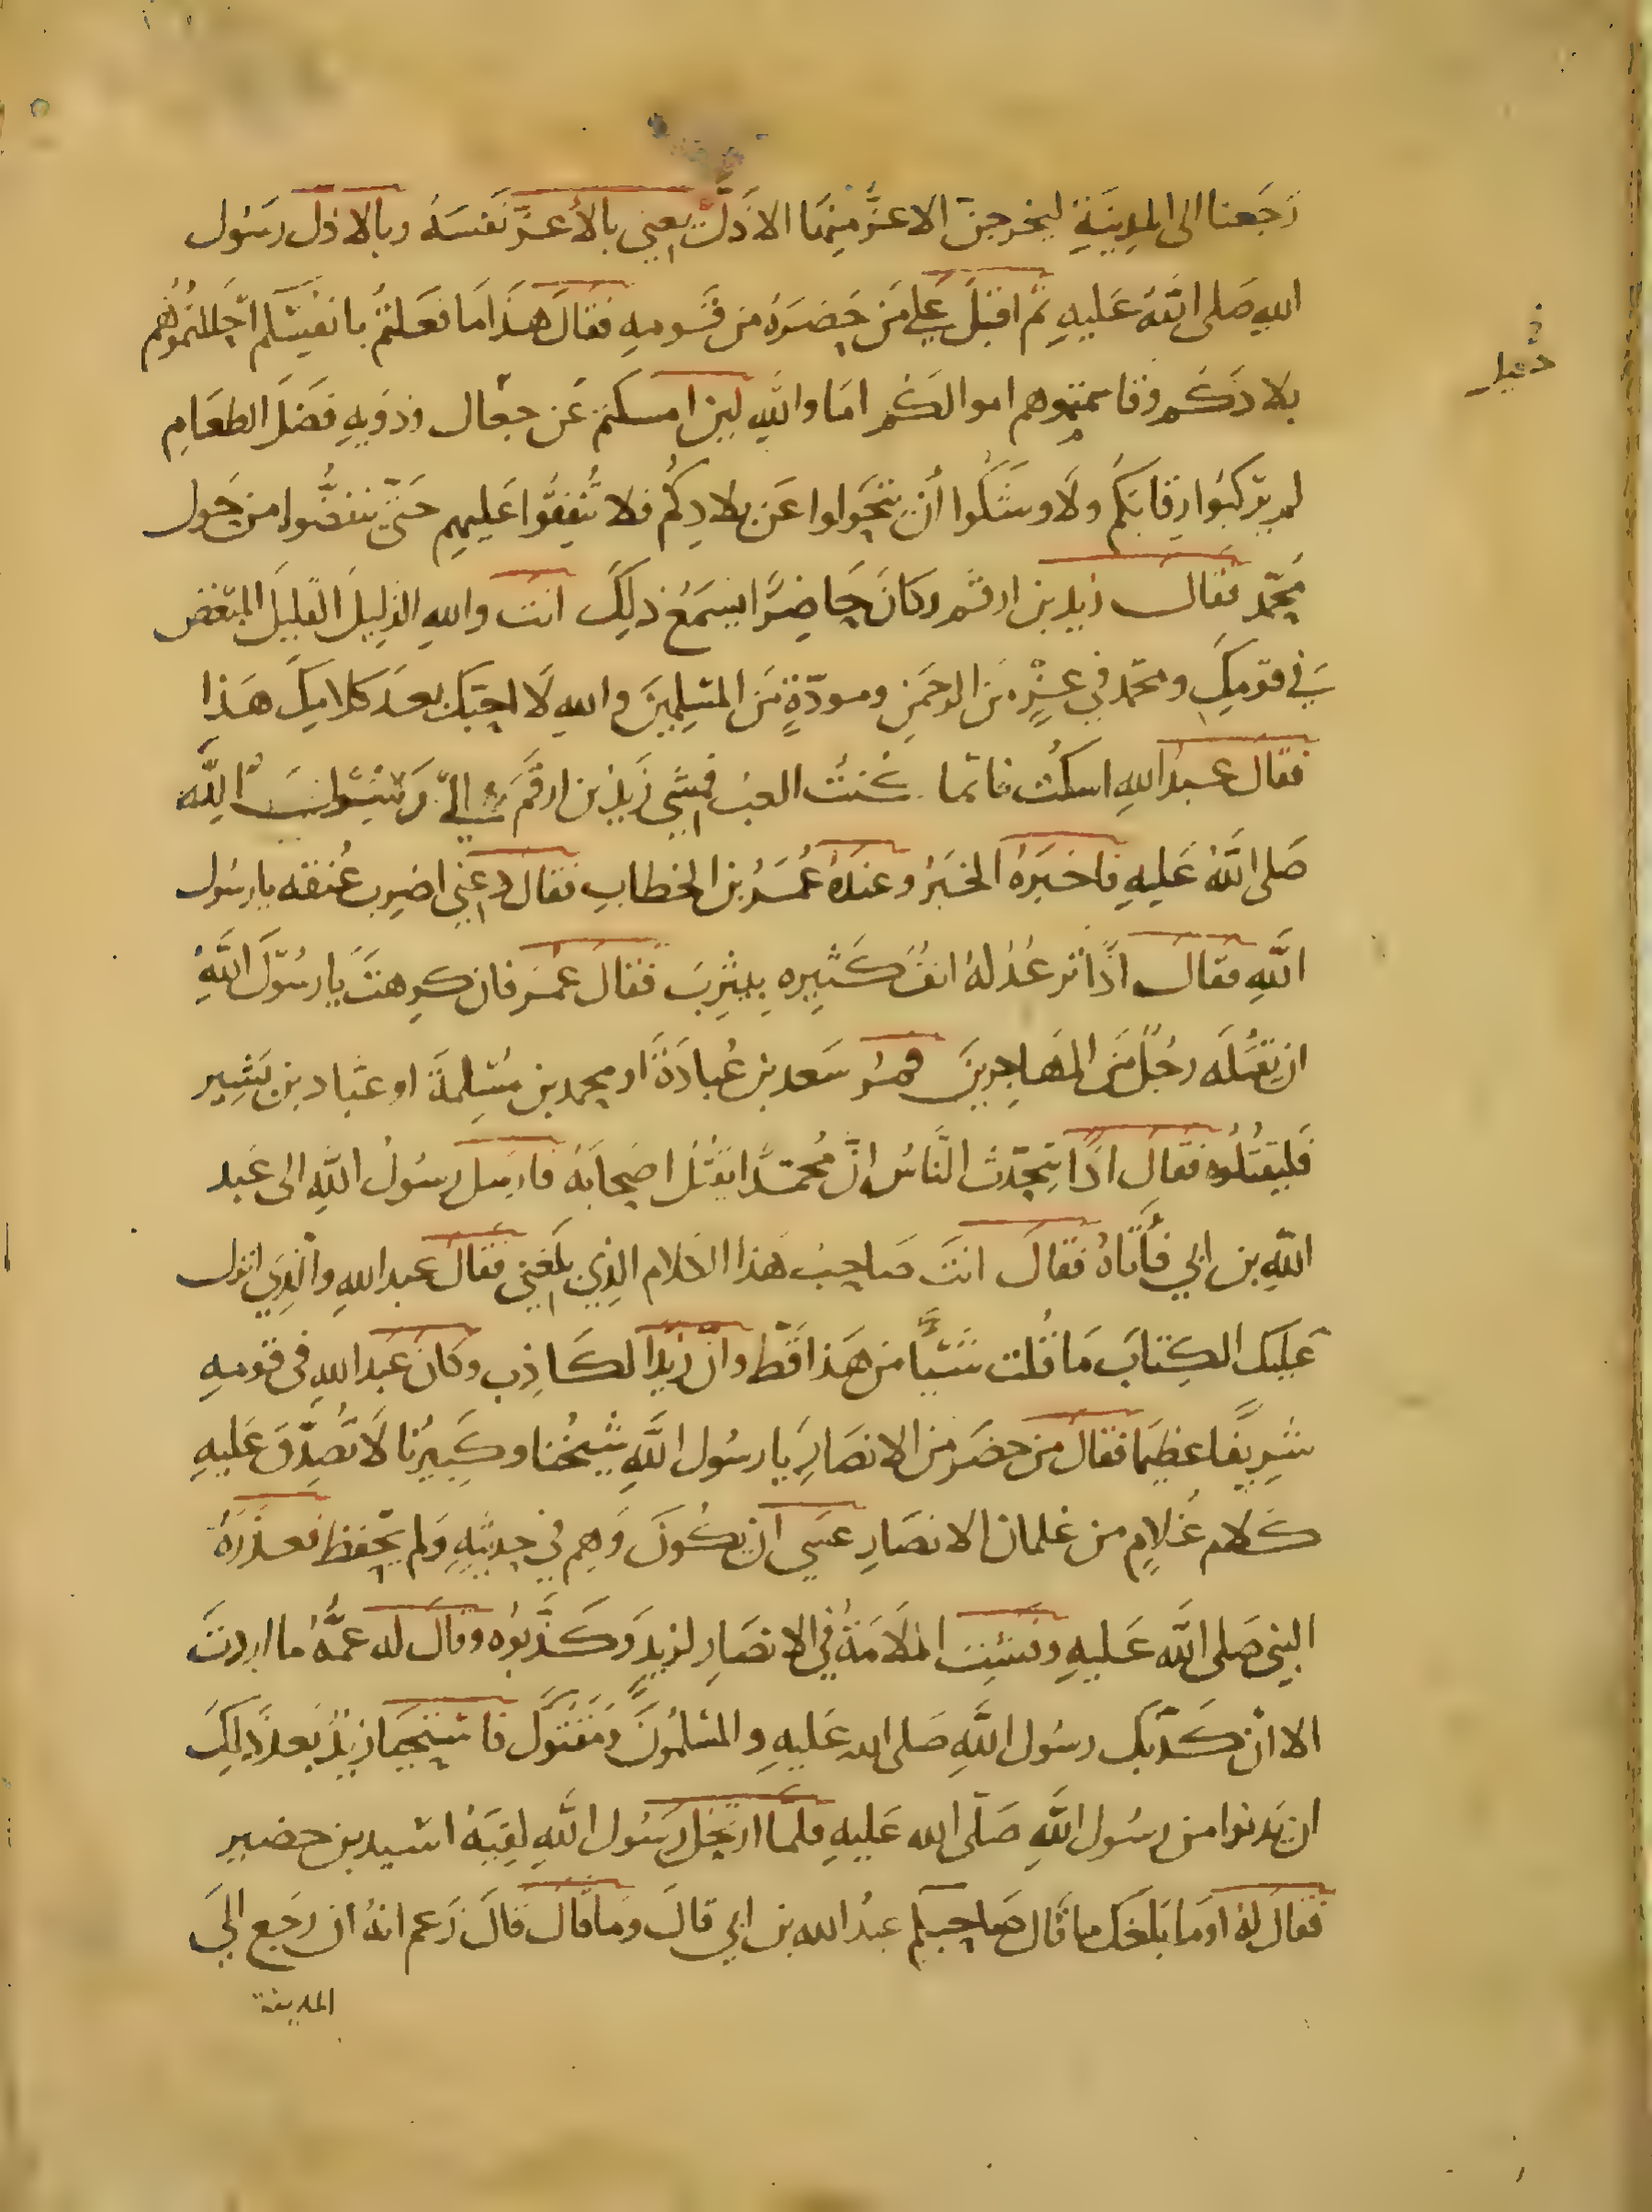 رَجَعنا الى المدِينَةِ ليخرجنّ الاعزّ مِنهَا الاذَلّ يعني بالأعَزّ نَفسَهُ وبالاذل رسَوُل
اللهِ صَلى اللهُ عَليهِ ثم اقبَلَ عَلي مَن حَضَرَهُ من قَومِهِ فقالَ هذَا مَا فَعَلتُم بانفُسِكم احَللتُموُهُم
بلادَكم وقاسَمتموهم اموالكُم امَا واللهِ لين امسكتم عَن جعَال وذوَيهِ فَضلَ الطعَامِ
لم يَركبوُا رِقَابَكُم ولَاوشَكُوا أن يتحَولوا عَن بلادِكُم فلا تُنفِقُوا عَليهِم حَتّى ينفضُّوا من حَول
مُحَمّد فقال زيد بن ارقم وكانَ حَاضِرًا يسمَعُ ذلِكَ انت واللهِ الذلِيلَ القليلَ المبَغض
في قَومِكَ ومحَمد في عِزّه مِن الرحمَنِ ومودّةٍ مّنَ المسلِمينَ واللهِ لَا احِبّك بعدَ كلامِكَ هَذا
فقالَ عبدُ اللهِ اسكُت فانّما كُنتُ العبُ فمشَى زَيدُ بن ارقَمَ إلىَ رَسُول اللَّه
صَلى اللَّهُ عَليهِ فاخبَرَهُ الخبَرُ وعندَهُ عُمَرُ بن الخطابِ فقال دَعني اضرِب عُنقه يا رسُول
اللَّهِ فقال اذًا ترعدُ لهُ انفٌ كَثِيره بِيثرِبَ فقال عُمَر فان كرِهتَ يا رسُولَ اللَّهِ
ان يقتُلَه رجُلٌ مّنَ المهَاجِرينَ فمُر سَعد بن عُبادَةَ او محمد بن مُسلِمَةَ او عبّاد بن بَشِير
فَليَقتُلُوه فقالَ اذًا يتحَدّثَ النّاسُ انّ مُحَمّدًا يقتُلُ اصحَابَهُ فارسَل رسُولُ اللَّهِ الى عَبد
اللهِ بن ابي فَأتاهُ فقالَ انتَ صَاحِبُ هَذا الكلام الذِي بَلَغني فقالَ عبد اللهِ والّذِي انزل
عَليكَ الكِتابَ مَا قُلت شَيئًا من هَذا قَطّ وانّ زَيدًا لكَاذِب وكانَ عَبد اللهِ في قومِهِ
شرِيفا عظيما فقال من حضَر من الانصَارِ يا رسُول اللَّهِ شَيخُنا وكَبِيرُنا لَا تُصَدّقَ عَليهِ
كَلام غُلامٍ من غلمان الانصَارِ عسَى ان يكُونَ وَهِم في حدِيثهِ وَلم يحَفظ فعذَرَهُ
النبي صَلى اللَّه عَليهِ وفشَت الملَامَةُ في الانصَارِ لزيدٍ وَكَذَّبُوه وقالَ له عمَّهُ ما اردتَ
الا انْ كَذّبكَ رسُول اللَّهِ صَلى الله عَليهِ والمسْلمُونَ وَمَقتوكَ فاستحيَا زيدٌ بَعدَ ذلكَ
ان يَدنوا من رسُول اللَّهِ صَلّى الله عَليهِ فلما ارتحَل رَسُول اللَّهِ لقِيَهُ اسَيد بن حضير
فقالَ لهُ اوَمَا بَلَغَكَ ما قَال صَاحِبكم عبدُ الله بن ابي قالَ ومَا قالَ قالَ زَعم انهُ ان رجَع الىَ
المدينة